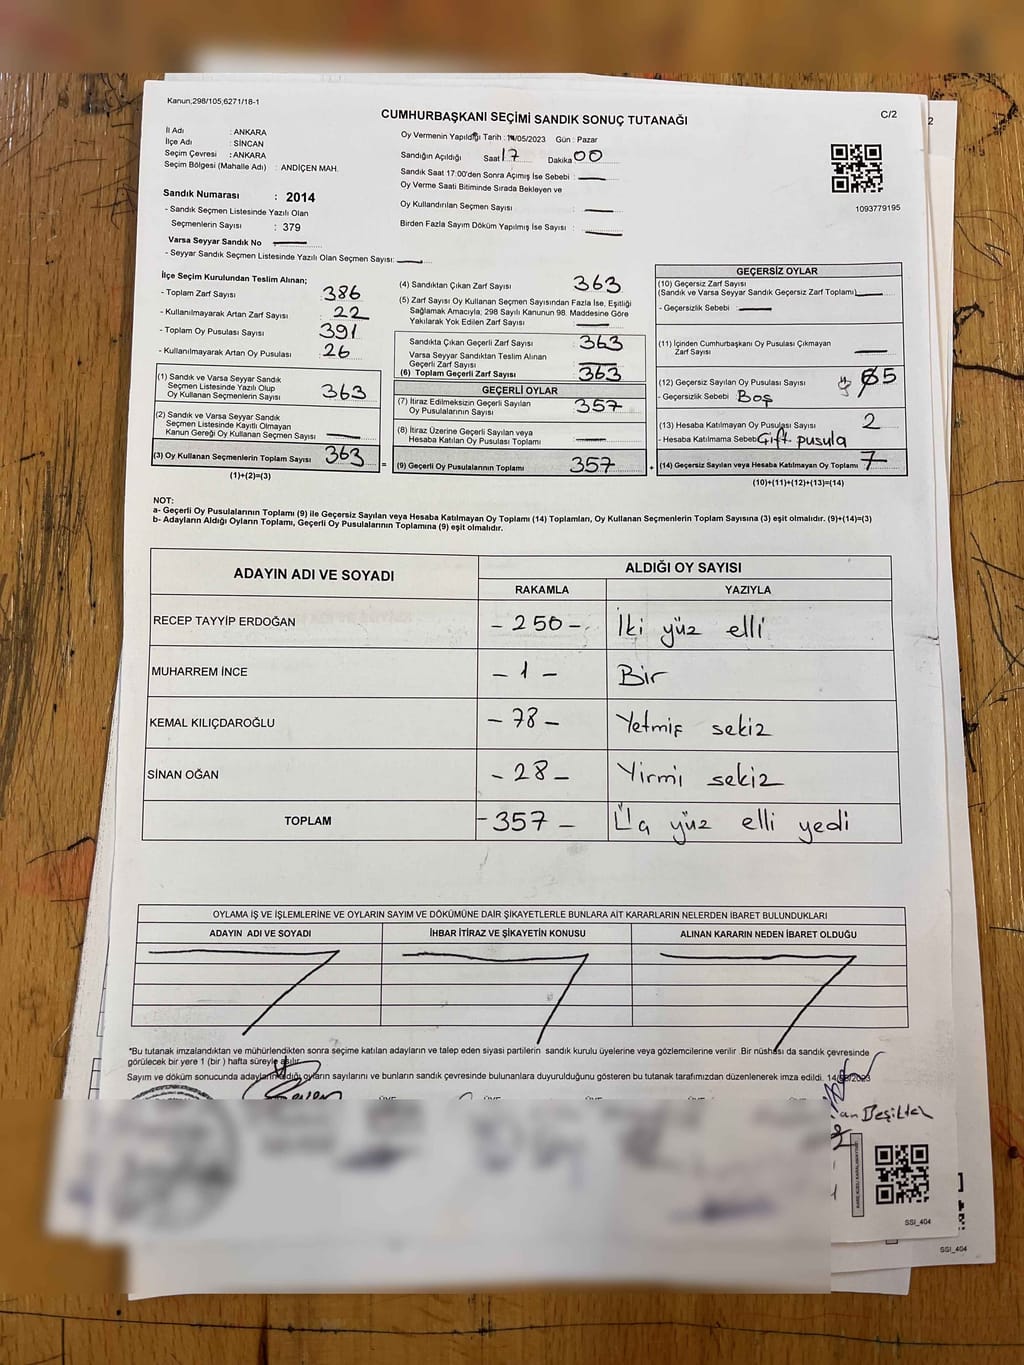 Kanun;298/105;6271/18-1
CUMHURBAŞKANI SEÇİMİ SANDIK SONUÇ TUTANAĞI
C/2
İl Adı : ANKARA
İlçe Adı : SİNCAN
Seçim Çevresi : ANKARA
Seçim Bölgesi (Mahalle Adı) : ANDİÇEN MAH.
Sandık Numarası : 2014
- Sandık Seçmen Listesinde Yazılı Olan
Seçmenlerin Sayısı : 379
Varsa Seyyar Sandık No
- Seyyar Sandık Seçmen Listesinde Yazılı Olan Seçmen Sayısı:
Oy Vermenin Yapıldığı Tarih : 14/05/2023 Gün : Pazar
Sandığın Açıldığı Saat 17 Dakika 00
Sandık Saat 17:00'den Sonra Açımış İse Sebebi :
Oy Verme Saati Bitiminde Sırada Bekleyen ve
Oy Kullandırılan Seçmen Sayısı :
Birden Fazla Sayım Döküm Yapılmış İse Sayısı :
1093779195
İlçe Seçim Kurulundan Teslim Alınan;
- Toplam Zarf Sayısı 386
- Kullanılmayarak Artan Zarf Sayısı : 22
- Toplam Oy Pusulası Sayısı 391
- Kullanılmayarak Artan Oy Pusulası : 26
(1) Sandık ve Varsa Seyyar Sandık
Seçmen Listesinde Yazılı Olup
Oy Kullanan Seçmenlerin Sayısı : 363
(2) Sandık ve Varsa Seyyar Sandık
Seçmen Listesinde Kayıtlı Olmayan
Kanun Gereği Oy Kullanan Seçmen Sayısı :
(3) Oy Kullanan Seçmenlerin Toplam Sayısı : 363
(1)+(2)=(3)
=
(4) Sandıktan Çıkan Zarf Sayısı : 363
(5) Zarf Sayısı Oy Kullanan Seçmen Sayısından Fazla İse, Eşitliği
Sağlamak Amacıyla; 298 Sayılı Kanunun 98. Maddesine Göre
Yakılarak Yok Edilen Zarf Sayısı :
Sandıkta Çıkan Geçerli Zarf Sayısı : 363
Varsa Seyyar Sandıktan Teslim Alınan
Geçerli Zarf Sayısı :
(6) Toplam Geçerli Zarf Sayısı : 363
GEÇERLİ OYLAR
(7) İtiraz Edilmeksizin Geçerli Sayılan
Oy Pusulalarının Sayısı : 357
(8) İtiraz Üzerine Geçerli Sayılan veya
Hesaba Katılan Oy Pusulası Toplamı :
(9) Geçerli Oy Pusulalarının Toplamı : 357
+
GEÇERSİZ OYLAR
(10) Geçersiz Zarf Sayısı
(Sandık ve Varsa Seyyar Sandık Geçersiz Zarf Toplamı)
- Geçersizlik Sebebi :
(11) İçinden Cumhurbaşkanı Oy Pusulası Çıkmayan
Zarf Sayısı :
(12) Geçersiz Sayılan Oy Pusulası Sayısı : 5
- Geçersizlik Sebebi : Boş
(13) Hesaba Katılmayan Oy Pusulası Sayısı : 2
- Hesaba Katılmama Sebebi Çift pusula
(14) Geçersiz Sayılan veya Hesaba Katılmayan Oy Toplamı : 7
(10)+(11)+(12)+(13)=(14)
NOT:
a- Geçerli Oy Pusulalarının Toplamı (9) ile Geçersiz Sayılan veya Hesaba Katılmayan Oy Toplamı (14) Toplamları, Oy Kullanan Seçmenlerin Toplam Sayısına (3) eşit olmalıdır. (9)+(14)=(3)
b- Adayların Aldığı Oyların Toplamı, Geçerli Oy Pusulalarının Toplamına (9) eşit olmalıdır.
ADAYIN ADI VE SOYADI
ALDIĞI OY SAYISI
RAKAMLA YAZIYLA
RECEP TAYYİP ERDOĞAN - 250 - İki yüz elli
MUHARREM İNCE - 1 - Bir
KEMAL KILIÇDAROĞLU - 78 - Yetmiş sekiz
SİNAN OĞAN - 28 - Yirmi sekiz
TOPLAM - 357 - Üç yüz elli yedi
OYLAMA İŞ VE İŞLEMLERİNE VE OYLARIN SAYIM VE DÖKÜMÜNE DAİR ŞİKAYETLERLE BUNLARA AİT KARARLARIN NELERDEN İBARET BULUNDUKLARI
ADAYIN ADI VE SOYADI İHBAR İTİRAZ VE ŞİKAYETİN KONUSU ALINAN KARARIN NEDEN İBARET OLDUĞU
*Bu tutanak imzalandıktan ve mühürlendikten sonra seçime katılan adayların ve talep eden siyasi partilerin sandık kurulu üyelerine veya gözlemcilerine verilir .Bir nüshası da sandık çevresinde
görülecek bir yere 1 (bir ) hafta süreyle asılır.
Sayım ve döküm sonucunda adayların aldığı oyların sayılarını ve bunların sandık çevresinde bulunanlara duyurulduğunu gösteren bu tutanak tarafımızdan düzenlenerek imza edildi. 14/05/2023
SSI_404
SSI_404